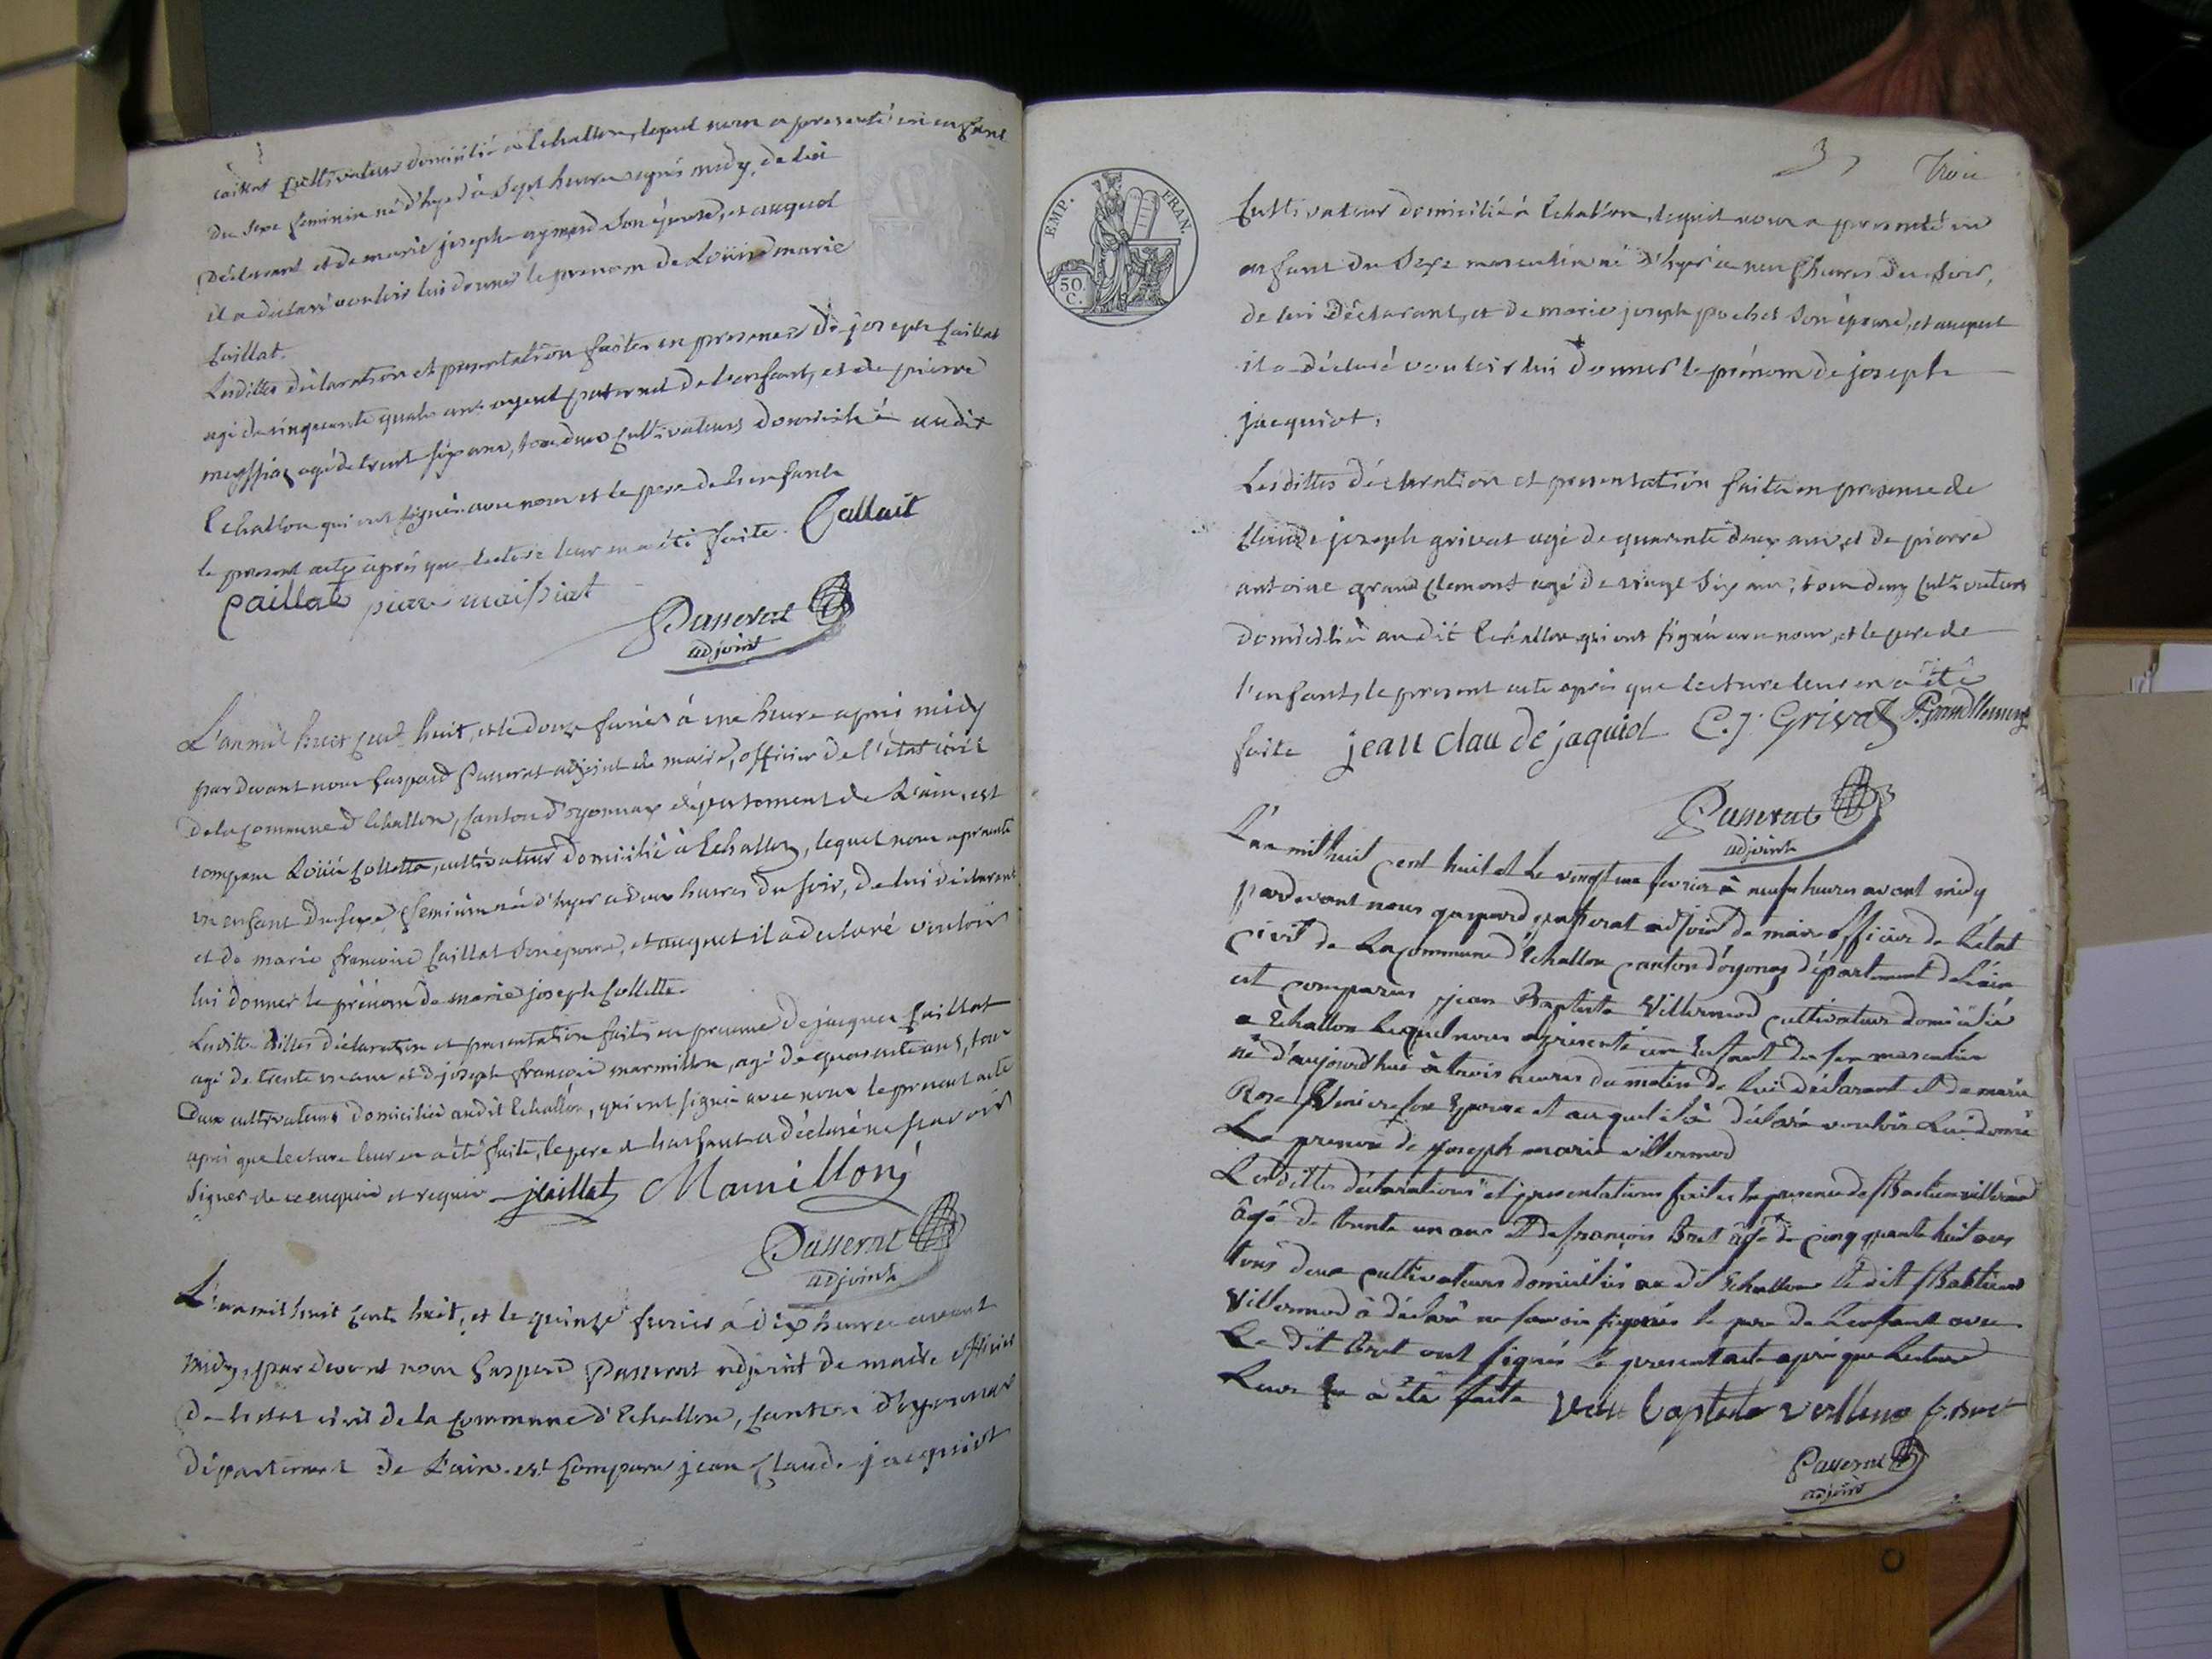 caillat Cultivateur domicilié a Echallon, lequel nous a presenté un enfant
du sexe feminin né d'hyer à sept heures après midy, de lui
déclarant et de marie joseph aymard son épouse, et auquel
il a déclaré vouloir lui donner le prenom de Loüise marie
Caillat.
Lesdittes déclaration et presentation faites en presence de joseph Caillat
agé de cinquante quatre ans ayeul paternel de l'enfant, et de pierre
meyssiaz agé de trente six ans, tous deux Cultivateurs domicilié audit
Echallon qui ont signés avec nous et le pere de l'enfant
le present acte après que lecture leur en a été faite. Callait
Caillat piere maissiat
Passerat
adjoint
L'an mil huit cent huit, et le douze fevrier à une heure après midy
pardevant nous Gaspard Passerat adjoint de maire, officier de l'état civil
de la Commune d'Echallon, Canton d'oyonnax département de L'ain, est
comparu Loüis Collette, cultivateur domicilié à Echallon, lequel nous a presenté
un enfant du sexe feminin né d'hyer a deux heures du soir, de lui déclarant
et de marie francoise Caillat son épouse, et auquel il a déclaré vouloir
lui donner le prénom de marie joseph Collette.
Lesdittes dittes déclaration et presentation faites en presence de jacques Caillat
agé de trente un ans et de joseph francois marmillon, agé de quarante ans, tous
deux cultivateurs domiciliés audit Echallon, qui ont signés avec nous le present acte
après que lecture leur en a été faite, le pere de l'enfant a déclaré ne scavoir
signer de ce enquis et requis jcaillat Mamillon
Passerat
adjoint
L'an mil huit cent huit, et le quinze fevrier à dix heures avant
midy, pardevant nous Gaspard Passerat adjoint de maire officier
de l'etat civil de la Commune d'Echallon, Canton d'oyonnax
département de L'ain. est Comparu jean Claude jacquiot
3 Trois
EMP. FRAN.
50 C.
Cultivateur domicilié à Echallon, lequel nous a presenté un
enfant du sexe masculin né d'hyer a neuf heures du soir,
de lui déclarant, et de marie joseph pochet son épouse, et auquel
il a déclaré vouloir lui donner le prénom de joseph
jacquiot.
Lesdittes déclaration et presentation faite en presence de
Claude joseph grivat agé de quarente deux ans, et de pierre
antoine grand Clement agé de vingt six ans, tous deux Cultivateurs
domicilié audit Echallon qui ont signés avec nous, et le pere de
l'enfant, le present acte après que lecture leur en a été
faite jean clau de jaquiot C. J. Grivat P. Grandclement
Passerat
adjoint
L'an mil huit cent huit et le vingt un fevrier à neuf heures avant midy
pardevant nous gaspard passerat adjoint de maire officier de L'état
civil de La commune d'Echallon canton d'oyonax département de L'ain
est comparus jean Baptiste Villermod cultivateur domicilié
a Echallon Lequel nous a présenté un Enfant du sex masculin
né d'aujourd'hui à trois heures du matin de lui déclarant et de marie
Rose son Epouse et auquel il a déclaré vouloir Lui donné
Le prenom de joseph marie villermod
Lesdittes déclarations et presentations faites En presence de Bastien villermod
âgé de trente un ans Et de françois Bret âgé de cinquante huit ans
tous deux cultivateurs domiciliés au dit Echallon Le dit Bastien
Villermod à déclaré ne savoir signés le pere de L'enfant avec
Le dit bret ont signés Le present acte après que Lecture
Leur En à été faite baptiste f. Bret
Passerat
adjoint